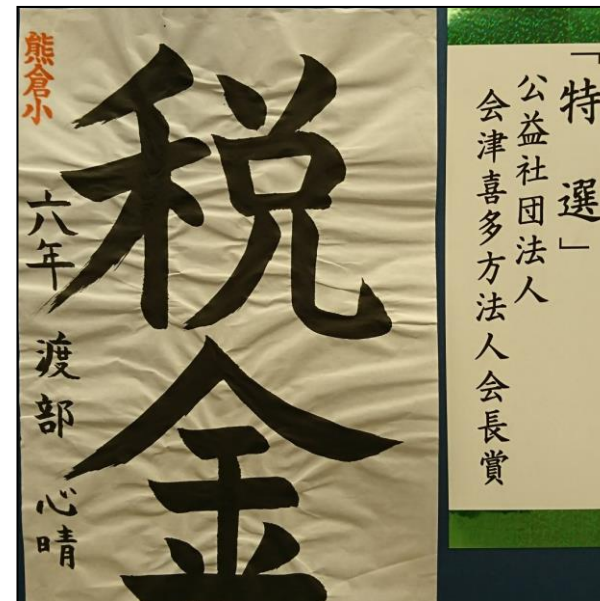 「特選」
公益社団法人
会津喜多方法人会長賞
税金
熊倉小
六年 渡部 心晴